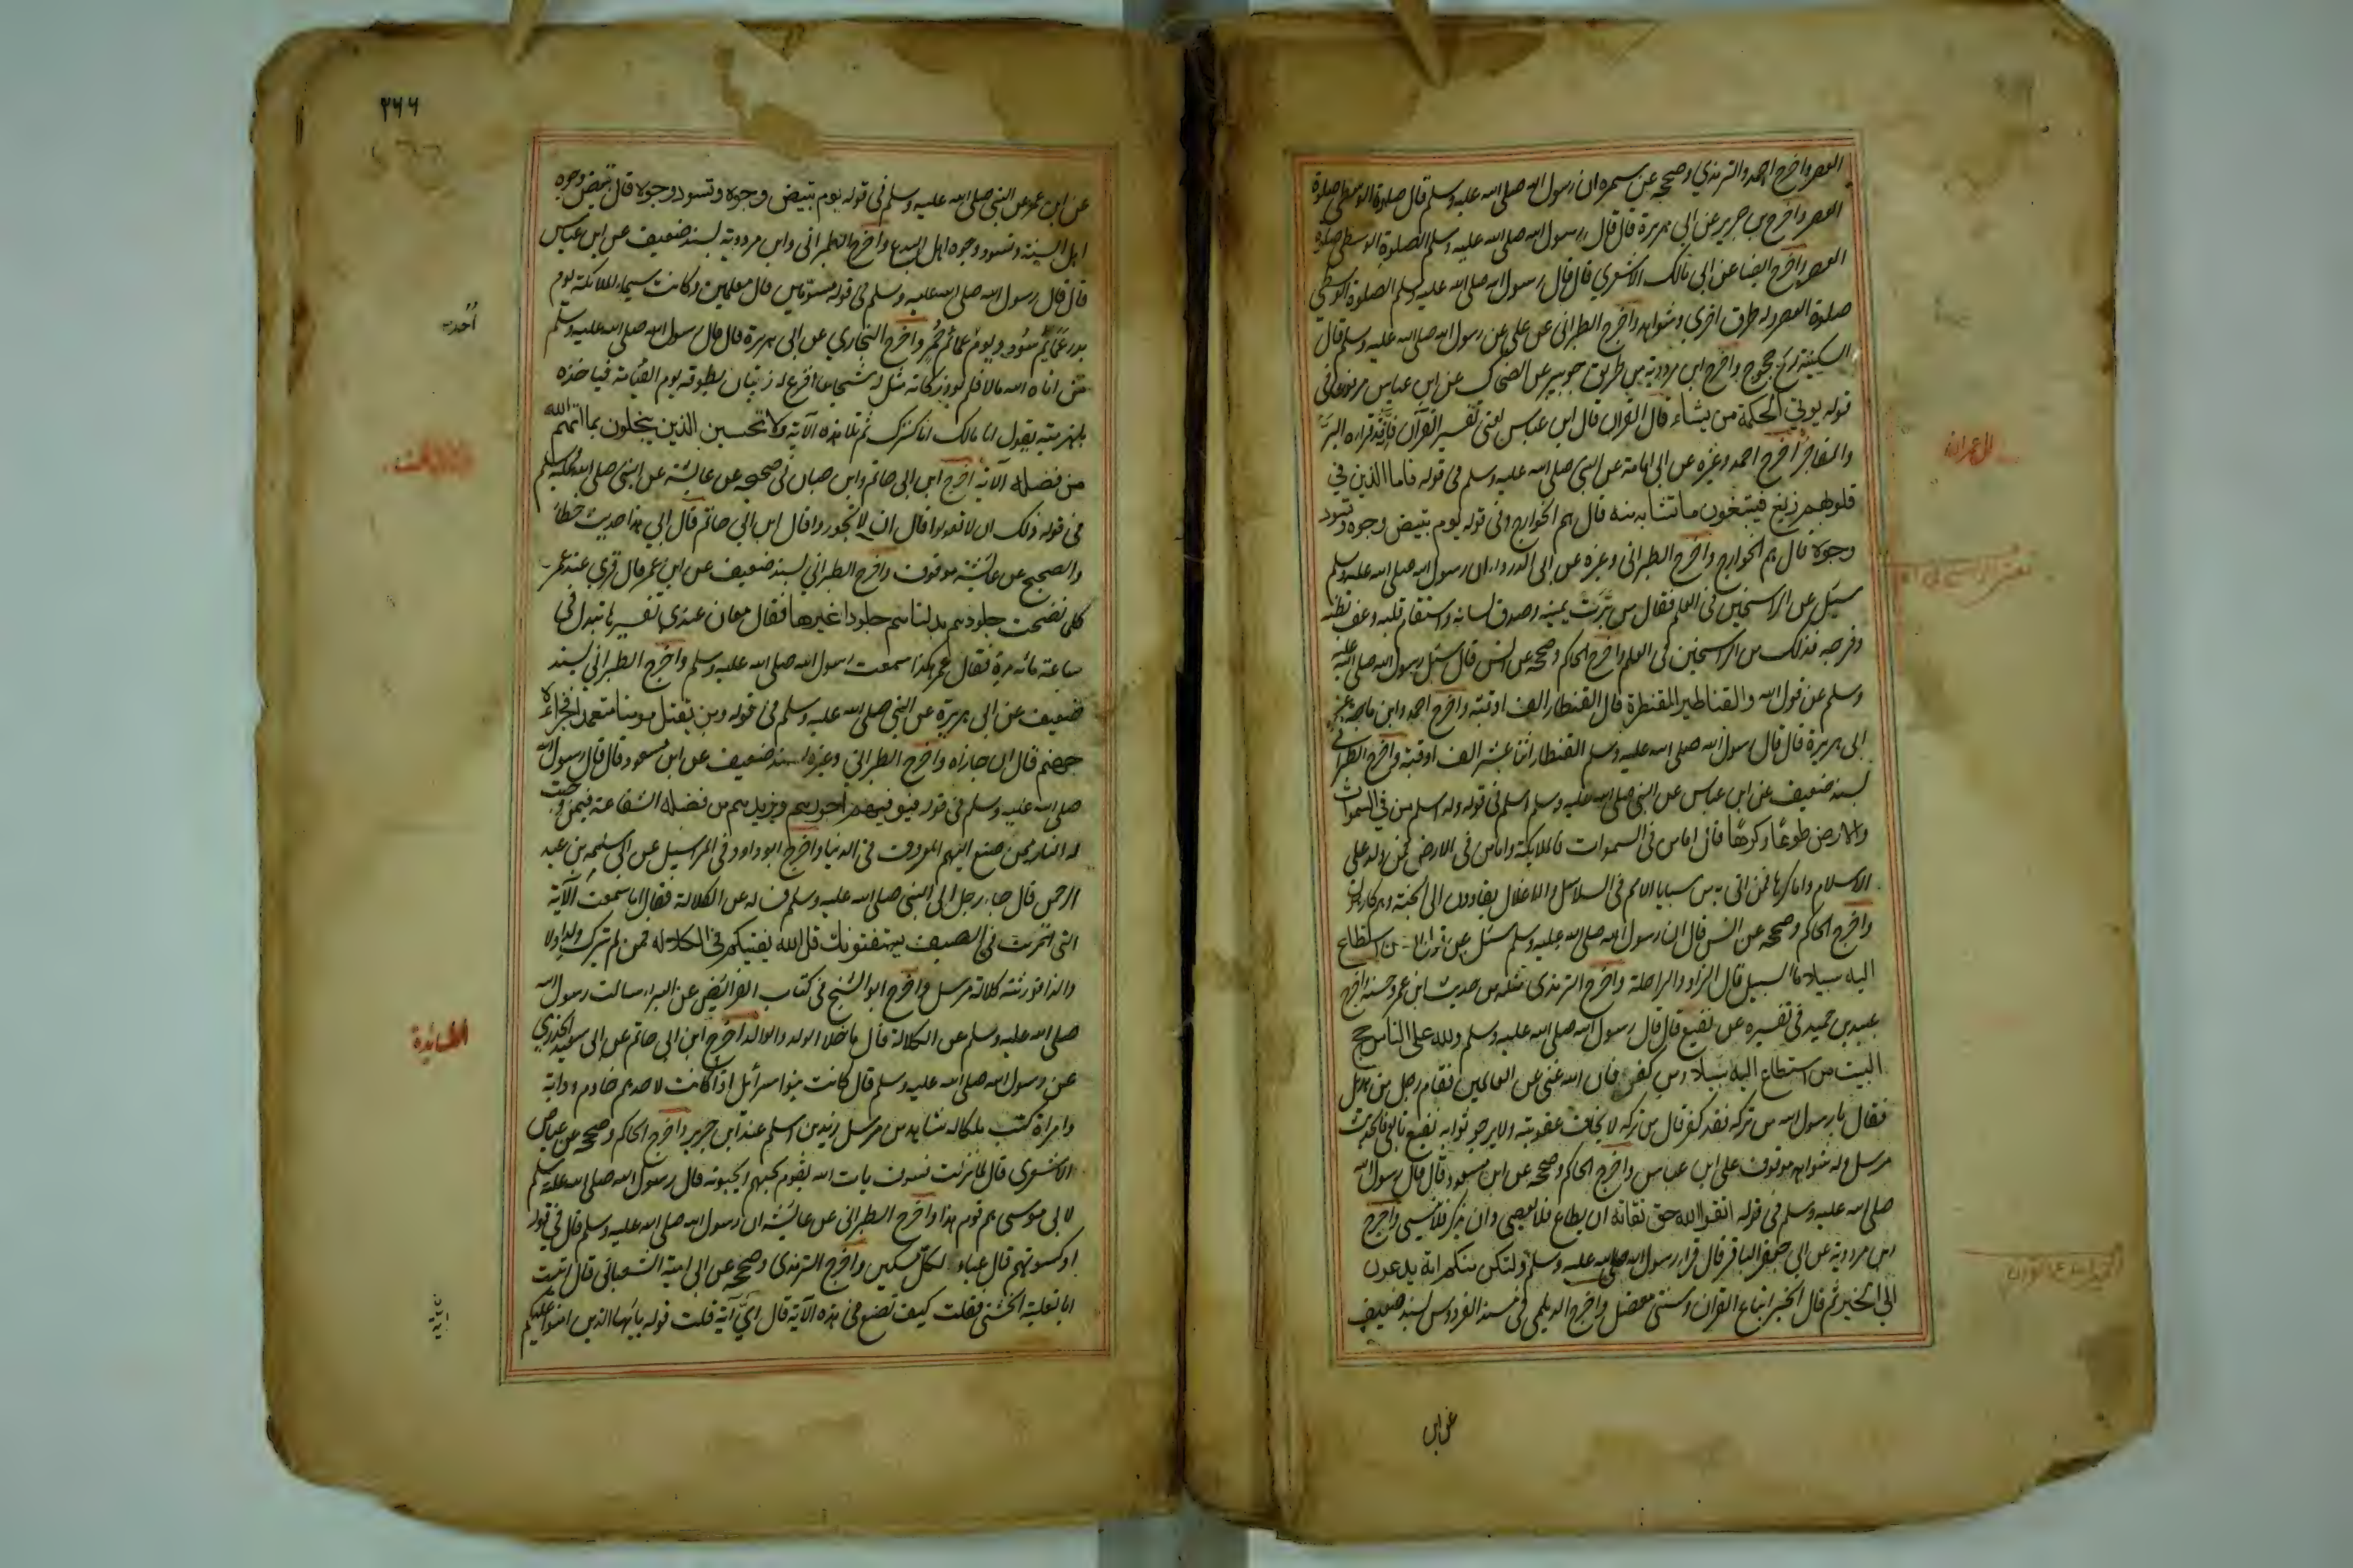 العصر واخرج احمد والترمذي وصححه عن سمره ان رسول الله صلى الله عليه وسلم قال صلوة الوسطى صلوة
العصر واخرج بن جرير عن ابى هريرة قال قال رسول الله صلى الله عليه وسلم الصلوة الوسطى صلوة
العصر واخرج ايضا عن ابى مالك الاشعري قال قال رسول الله صلى الله عليه وسلم الصلوة الوسطي
صلوة العصر وله طرق اخرى وشواهد واخرج الطبرانى عن على عن رسول الله صلى الله عليه وسلم قال
السكينة ريح خجوج واخرج ابن مردويه من طريق جويبر عن الضحاك عن ابن عباس مرفوعا فى
قوله يوتي الحكمة من يشاء قال القران قال ابن عباس يعنى تفسير القرآن فانه قد قراه البر
والفاجر اخرج احمد وغيره عن ابى امامة عن النبى صلى الله عليه وسلم فى قوله فاما الذين في
قلوبهم زيغ فيتبعون ما تشابه منه قال هم الخوارج وفى قوله يوم تبيض وجوه وتسود
وجوه قال هم الخوارج واخرج الطبرانى وغيره عن ابى الدرداء ان رسول الله صلى الله عليه وسلم
سئل عن الراسخين فى العلم فقال من برت يمينه وصدق لسانه واستقام قلبه وعف بطنه
وفرجه فذلك من الراسخين فى العلم واخرج الحاكم وصححه عن انس قال سئل رسول الله صلى الله عليه
وسلم عن قول الله والقناطير المقنطرة قال القنطار الف اوقية واخرج احمد وابن ماجه عن
ابى هريرة قال قال رسول الله صلى الله عليه وسلم القنطار اثنا عشر الف اوقية واخرج الطبرانى
بسند ضعيف عن ابن عباس عن النبى صلى الله عليه وسلم فى قوله وله اسلم من في السموات
والارض طوعا وكرها قال اما من فى السموات فالملايكة واما من فى الارض فمن ولد على
الاسلام واما كرها فمن اتى به من سبايا الامم فى السلاسل والاغلال يقادون الى الجنة وهم كارهون
واخرج الحاكم وصححه عن انس قال ان رسول الله صلى الله عليه وسلم سئل عن قول الله من استطاع
اليه سبيلا ما السبيل قال الزاد والراحلة واخرج الترمذى مثله من حديث ابن عمر وحسنه واخرج
عبد بن حميد فى تفسيره عن نفيع قال قال رسول الله صلى الله عليه وسلم ولله على الناس حج
البيت من استطاع اليه سبيلا ومن كفر فان الله غنى عن العالمين فقام رجل من هذيل
فقال يا رسول الله من تركه فقد كفر قال من تركه لا يخاف عقوبته ولا يرجو ثوابه نفيع تابعى فالحديث
مرسل وله شواهد موقوف على ابن عباس واخرج الحاكم وصححه عن ابن مسعود قال قال رسول الله
صلى الله عليه وسلم فى قوله اتقوا الله حق تقاته ان يطاع فلا يعصى وان يذكر فلا ينسى واخرج
ابن مردوية عن ابى جعفر الباقر قال قرا رسول الله صلى الله عليه وسلم ولتكن منكم امة يدعون
الى الخير ثم قال الخير اتباع القران وسنتى معضل واخرج الديلمى فى مسند الفردوس بسند ضعيف
ال عمران
عن ابن
٢٦٦
عن ابن عمر عن النبى صلى الله عليه وسلم فى قوله يوم تبيض وجوه وتسود وجوه قال تبيض وجوه
اهل السنة وتسود وجوه اهل البدع واخرج الطبرانى وابن مردوية بسند ضعيف عن ابن عباس
قال قال رسول الله صلى الله عليه وسلم فى قوله مسومين قال معلمين وكانت سيماء الملائكة يوم
بدر عمائم سود ويوم احد عمائم حمر واخرج البخاري عن ابى هريرة قال قال رسول الله صلى الله عليه وسلم
من اتاه الله مالا فلم يود زكاته مثل له شجاع اقرع له زبيبتان يطوقه يوم القيامة فياخذه
بلهزمتيه يقول انا مالك انا كنزك ثم تلا هذه الآية ولا تحسبن الذين يبخلون بما اتيهم الله
من فضله الآية اخرج ابن ابى حاتم وابن حبان فى صحيحه عن عائشة عن النبى صلى الله عليه وسلم
فى قوله ذلك ان لا تعولوا قال ان لا تجوروا قال ابن ابى حاتم قال ابى هذا حديث خطأ
والصحيح عن عائشة موقوف واخرج الطبراني بسند ضعيف عن ابن عمر قال قرى عند عمر
كلما نضجت جلودهم بدلناهم جلودا غيرها فقال معاذ عندى تفسيرها تبدل فى
ساعة مائه مرة فقال عمر هكذا سمعت رسول الله صلى الله عليه وسلم واخرج الطبرانى بسند
ضعيف عن ابى هريرة عن النبى صلى الله عليه وسلم فى قوله ومن يقتل مومنا متعمدا فجزاءه
جهنم قال ان جازاه واخرج الطبرانى وغيره بسند ضعيف عن ابن مسعود قال قال رسول الله
صلى الله عليه وسلم فى قوله فيوفيهم اجورهم ويزيدهم من فضله الشفاعة فيمن وجبت
له النار ممن صنع اليهم المعروف فى الدنيا واخرج ابو داود فى المراسيل عن ابى سلمه بن عبد
الرحمن قال جاء رجل الى النبى صلى الله عليه وسلم فساله عن الكلالة فقال اما سمعت الآية
التى انزلت فى الصيف يستفتونك قل الله يفتيكم فى الكلالة فمن لم يترك ولدا ولا
والدا فورثته كلالة مرسل واخرج ابو الشيخ فى كتاب الفرائض عن البراء سالت رسول الله
صلى الله عليه وسلم عن الكلالة قال ما خلا الولد والوالد اخرج ابن ابى حاتم عن ابى سعيد الخدرى
عن رسول الله صلى الله عليه وسلم قال كانت بنوا سرائل اذا كانت لاحدهم خادم ودابة
وامراة كتب ملكا له شاهد من مرسل زيد بن اسلم عند ابن جرير واخرج الحاكم وصححه عن عياض
الاشعرى قال لما نزلت فسوف يات الله بقوم يحبهم ويحبونه قال رسول الله صلى الله عليه وسلم
لابى موسى هم قوم هذا واخرج الطبرانى عن عائشة ان رسول الله صلى الله عليه وسلم قال فى قوله
او كسوتهم قال عباء لكل مسكين واخرج الترمذى وصححه عن ابى امية الشعبانى قال اتيت
ابا ثعلبة الخشنى فقلت كيف تصنع فى هذه الآية قال اى آية قلت قوله يايها الذين امنوا عليكم
احد
المائدة